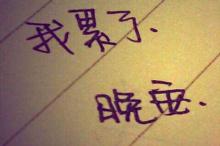 我累了.
晚安.